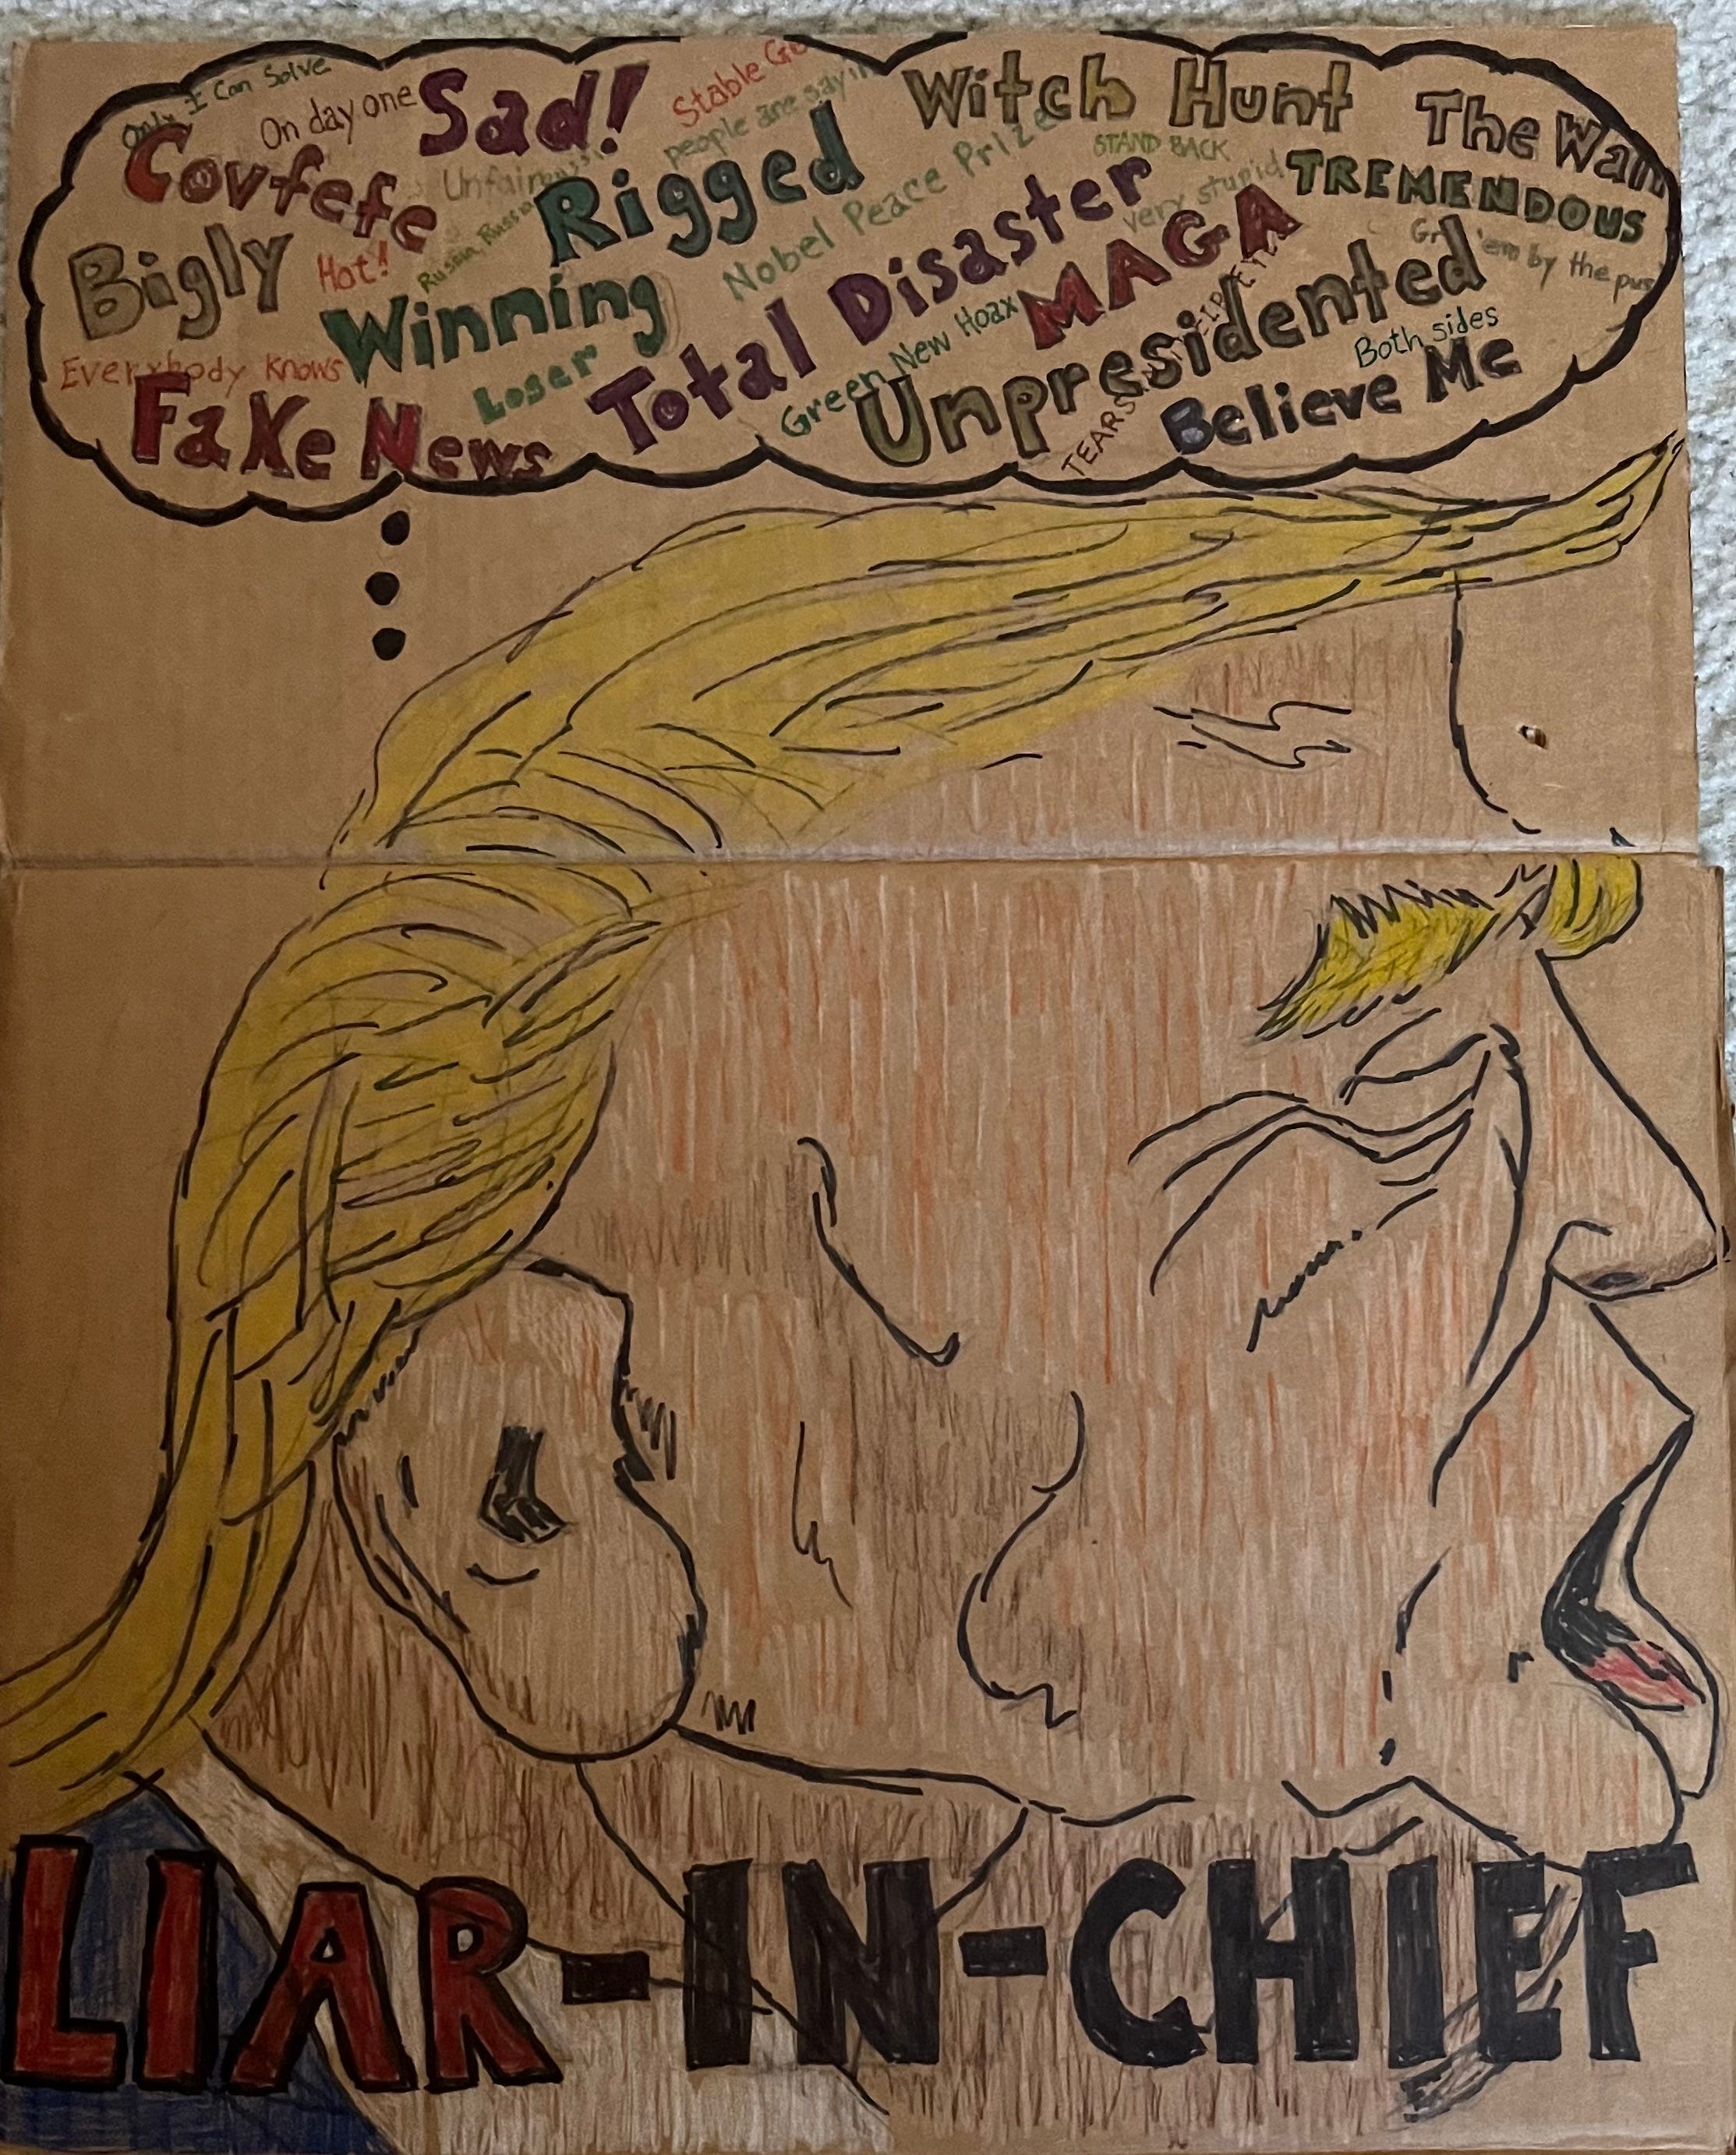 Only I Can Solve
On day one
Sad!
Stable
people are
Witch Hunt
The Wall
Covfefe
Unfair
Rigged
Nobel Peace Prize
STAND BACK
very stupid
TREMENDOUS
Bigly
Hot!
Russia, Russia
Winning
Total Disaster
MAGA
Gr 'em by the pus
Everybody Knows
Loser
Green New Hoax
Unpresidented
Both sides
Fake News
TEARS
Believe Me
LIAR-IN-CHIEF